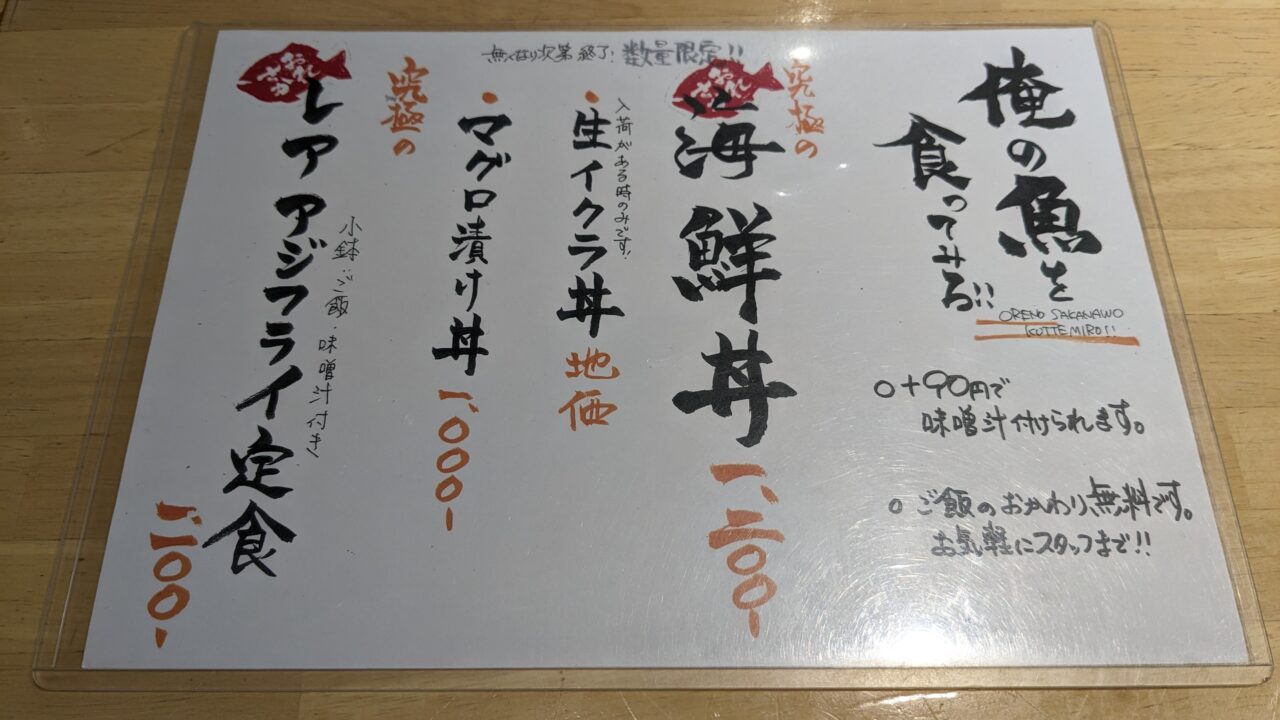 俺の魚を
食ってみろ!!
ORENO SAKANAWO
KUTTEMIRO!!
○+90円で
味噌汁付けられます。
○ご飯のおかわり無料です。
お気軽にスタッフまで!!
無くなり次第終了! 数量限定!!
究極の
海鮮丼 一、三〇〇-
入荷がある時のみです!
・生イクラ丼 地価
・マグロ漬け丼 一、〇〇〇-
究極の
レアアジフライ定食 一、二〇〇-
小鉢・ご飯・味噌汁付き